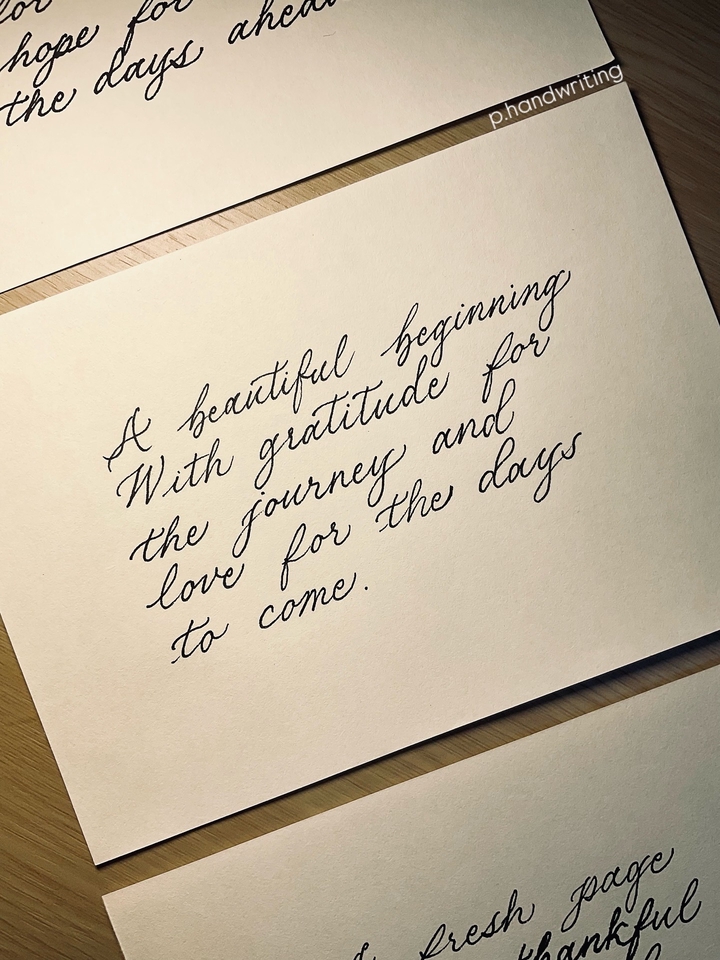 for
hope for
the days ahead
p.handwriting
A beautiful beginning
With gratitude for
the journey and
love for the days
to come.
fresh page
thankful